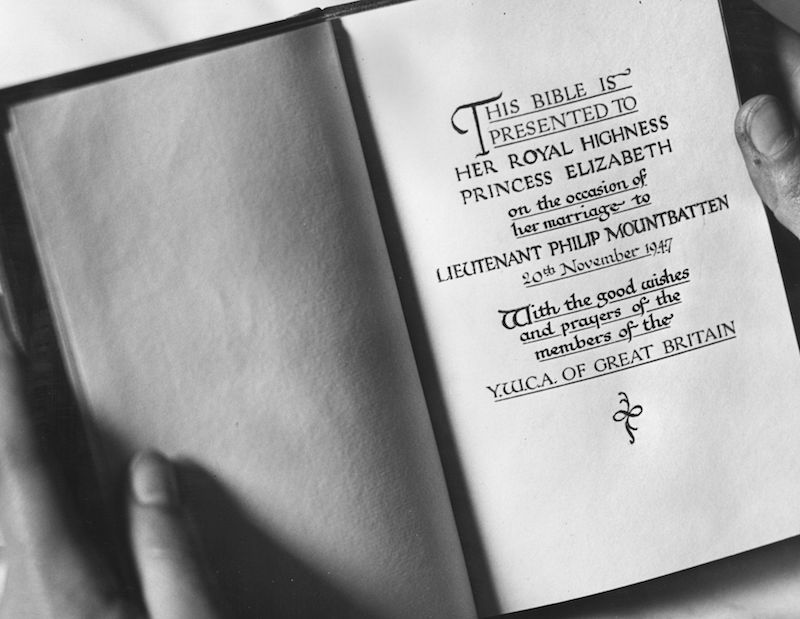 THIS BIBLE IS
PRESENTED TO
HER ROYAL HIGHNESS
PRINCESS ELIZABETH
on the occasion of
her marriage to
LIEUTENANT PHILIP MOUNTBATTEN
20th November 1947
With the good wishes
and prayers of the
members of the
Y.W.C.A. OF GREAT BRITAIN